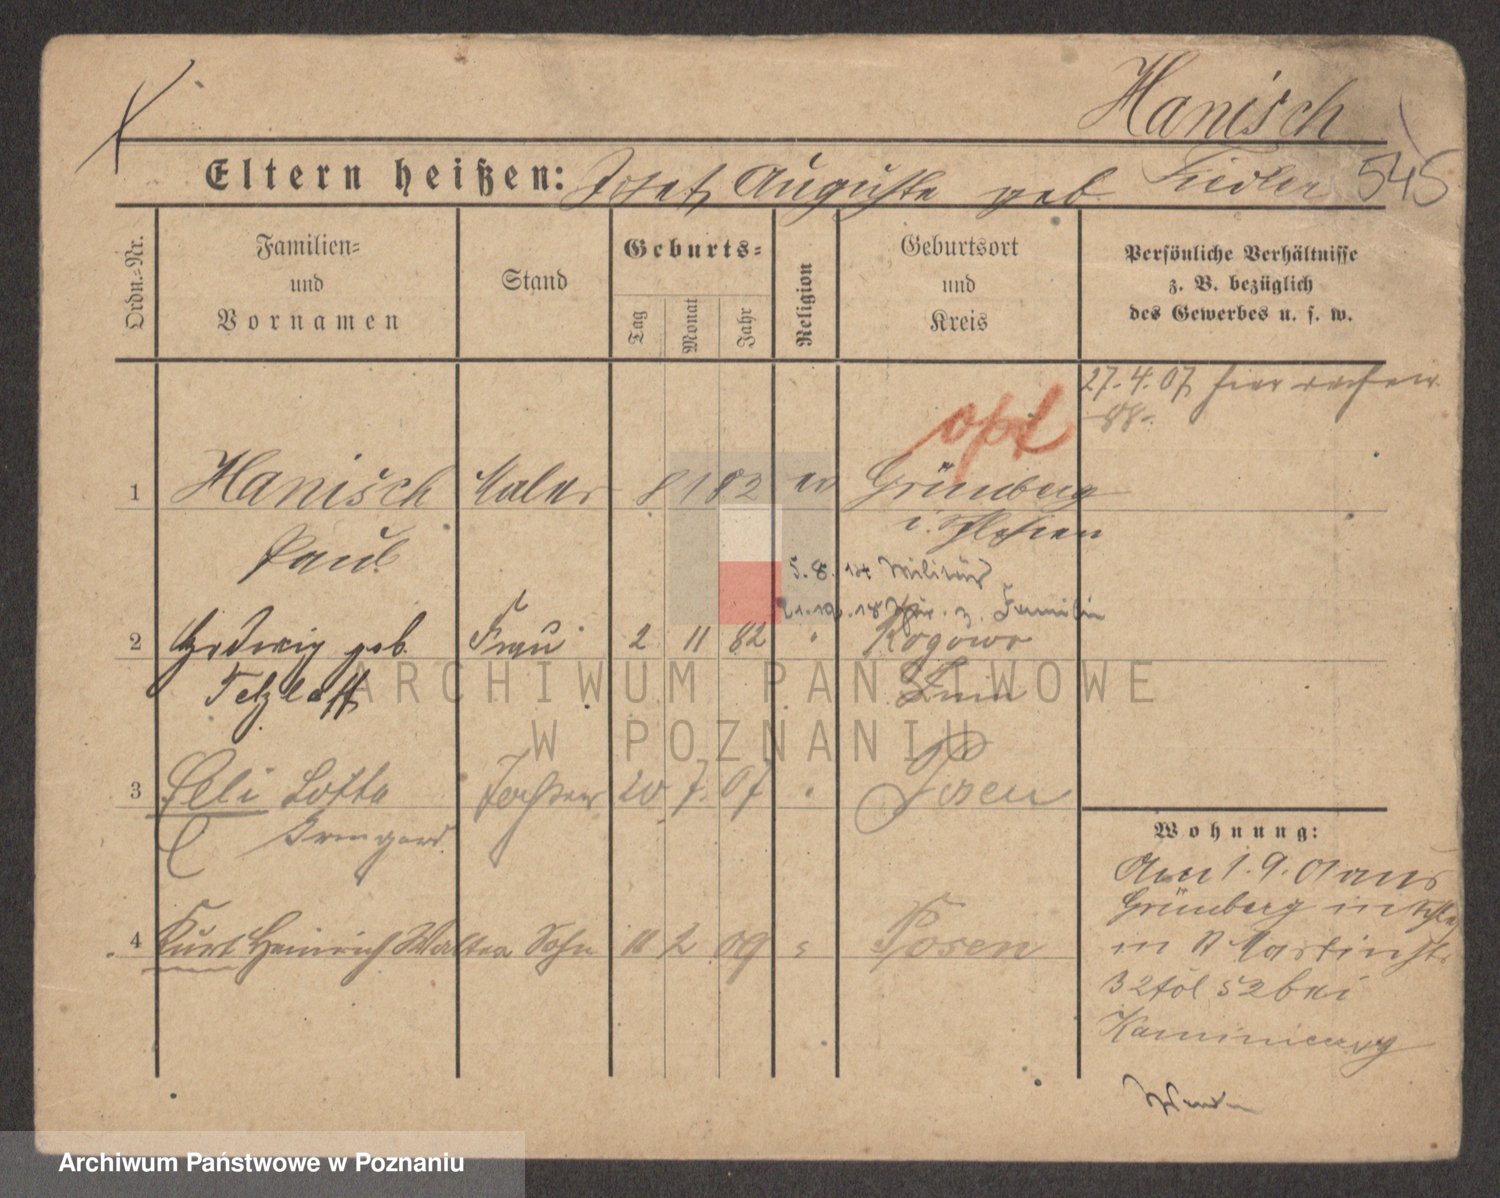 Hanisch
Eltern heißen: Josef, Auguste geb Fiedler 545
Ordn.-Nr.
Familien-
und
Vornamen
Stand
Geburts-
Tag
Monat
Jahr
Religion
Geburtsort
und
Kreis
Persönliche Verhältnisse
z. B. bezüglich
des Gewerbes u. s. w.
27.4.07 hier
opt
1 Hanisch Maler 8 1 82 ev Grünberg
i. Schlesien
Paul
5.8.14 Militär
21.12.18 z. Familie
2 Hedwig geb. Frau 2 11 82 " Rogowo
Tetzlaff Znin
ARCHIWUM PAŃSTWOWE
W POZNANIU
3 Eli Lotte Tochter 20 7. 07 " Posen
Irmgard
Wohnung:
Am 1.9.01 aus
Grünberg in Schles
4 Kurt Heinrich Walter Sohn 11 2 09 " Posen
in St Martinstr.
32 bei
Archiwum Państwowe w Poznaniu